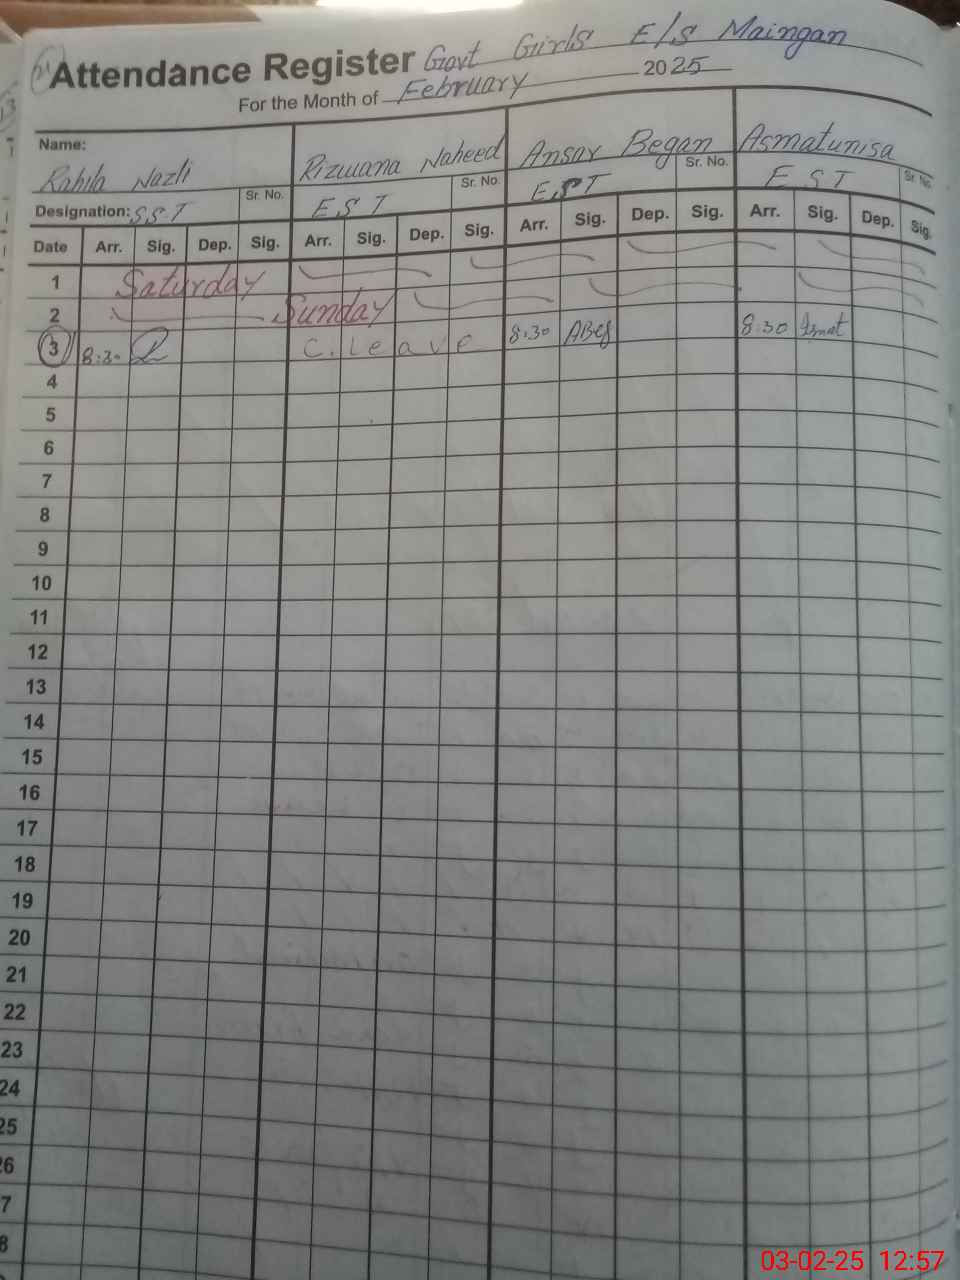 Attendance Register Govt Girls E/S Maingan
For the Month of February 2025
Name: Rahila Nazli Rizwana Naheed Ansar Began Asmatunisa
Sr. No. Sr. No. Sr. No. Sr. No.
Designation: SST EST EST EST
Date Arr. Sig. Dep. Sig. Arr. Sig. Dep. Sig. Arr. Sig. Dep. Sig. Arr. Sig. Dep. Sig.
1 Saturday
2 Sunday
3 8:30 C.leave 8:30 8:30 Asmat
4
5
6
7
8
9
10
11
12
13
14
15
16
17
18
19
20
21
22
23
24
25
26
7
8
03-02-25 12:57